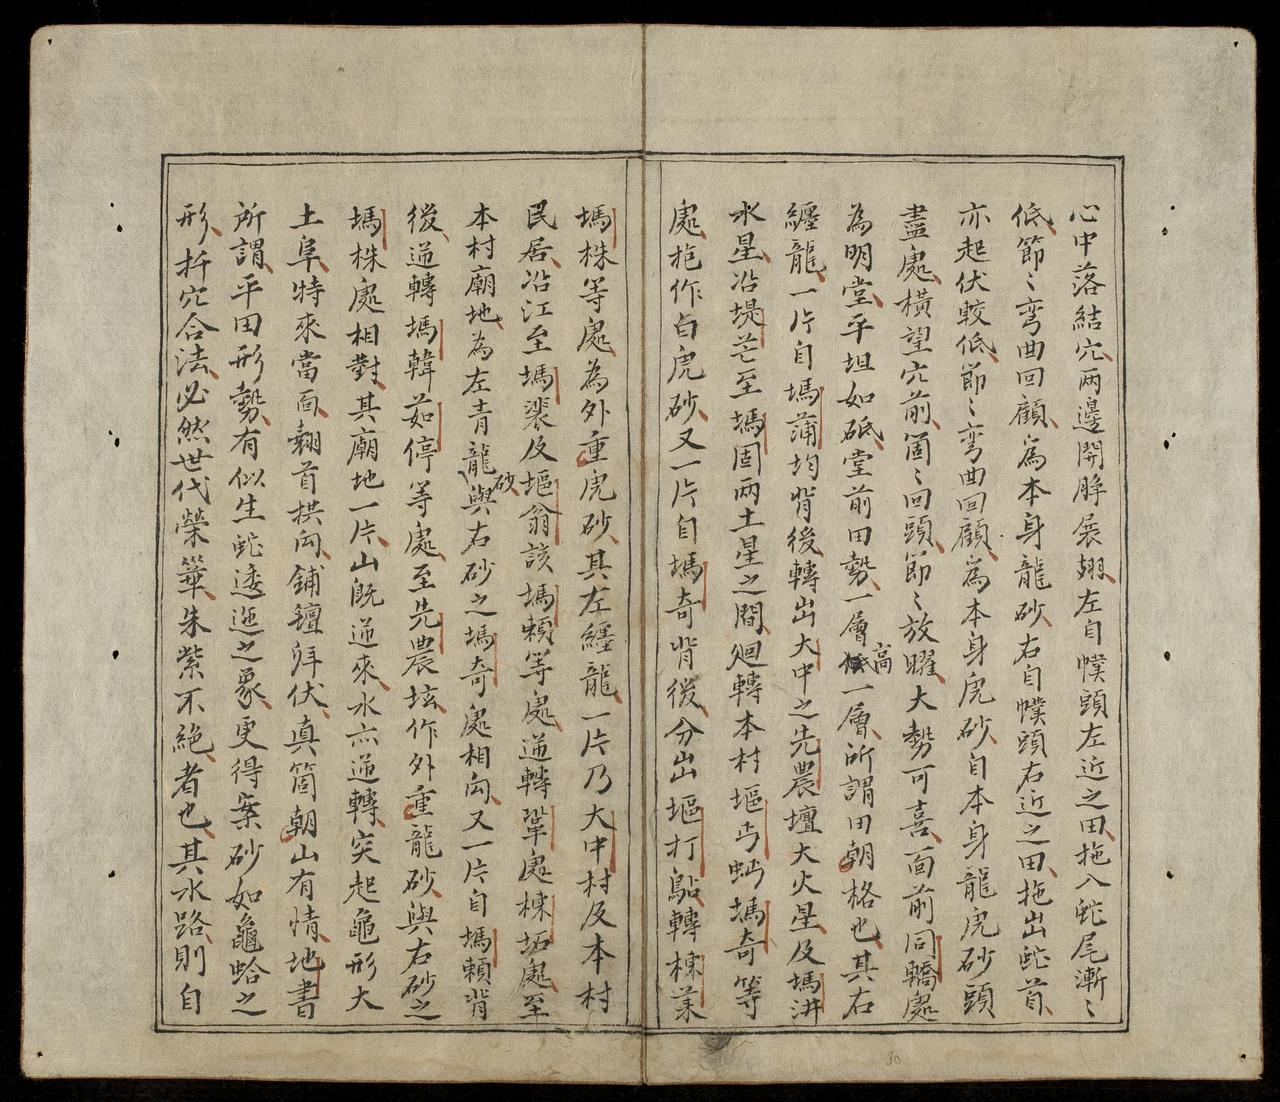 心中落結穴两邊開睜展翅左自幞頭左近之田拖入蛇尾漸〻
低節〻弯曲回顧為本身龍砂右自幞頭右近之田拖出蛇首
亦起伏較低節〻弯曲回顧為本身虎砂自本身龍虎砂頭
盡處橫望穴前箇〻回頭節〻放曜大勢可喜面前同轎處
為明堂平坦如砥堂前田勢一層高一層所謂田朝格也其右
纏龍一片自塢蒲均背後轉出大中之先農壇大火星及塢汫
水星沿堤芒至塢固两土星之間廻轉本村塸丐蚂塢奇等
處拖作白虎砂又一片自塢奇背後分出塸打鳥占轉棟萊
塢株等處為外重虎砂其左纏龍一片乃大中村及本村
民居沿江至塢裴及塸翁該塢賴等處逆轉鞏處棟坧處至
本村廟地為左青龍砂與右砂之塢奇處相向又一片自塢賴背
後逆轉塢韓茹停等處至先農坛作外重龍砂與右砂之
塢株處相對其廟地一片山既逆來水亦逆轉突起龜形大
土阜特來當面翹首拱向鋪氊拜伏真箇朝山有情地書
所謂平田形勢有似生蛇逶迤之象更得案砂如龜蛤之
形扦穴合法必然世代榮華朱紫不絕者也其水路則自